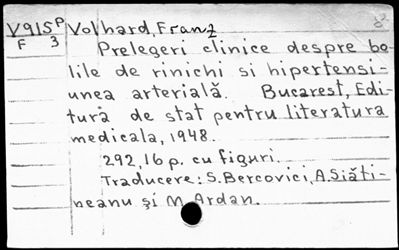 V915P Volhard, Franz
F 3 Prelegeri clinice despre bo-
lile de rinichi si hipertensi-
unea arterială. Bucarest, Edi-
tură de stat pentru literatura
medicala, 1948.
292, 16 p. cu figuri.
Traducere: S. Bercovici, A. Slăti-
neanu şi M. Ardan.